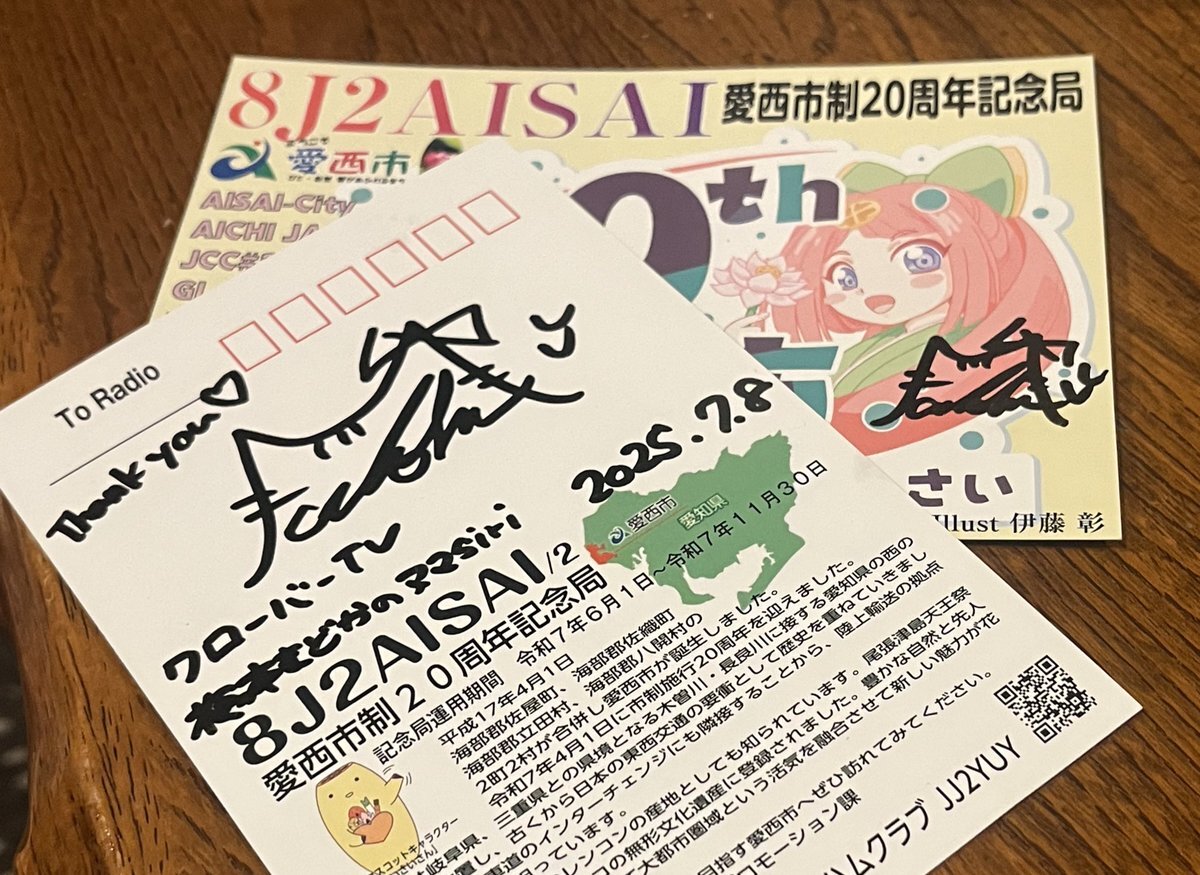 8J2AISAI 愛西市制20周年記念局
愛西市
AISAI-City
AICHI JA
JCC#
GI
th
さい
Illust 伊藤 彰
To Radio
Thank you♡
2025.7.8
クローバーTV
松本まどかのアマsiri
8J2AISAI/2
愛西市制20周年記念局
記念局運用期間 令和7年6月1日~令和7年11月30日
愛西市
愛知県
平成17年4月1日
海部郡佐屋町、海部郡佐織町
海部郡立田村、海部郡八開村の
2町2村が合併し愛西市が誕生しました。
令和7年4月1日に市制施行20周年を迎えました。
三重県との県境となる木曽川・長良川に接する愛知県の西の
岐阜県、
置し、古くから日本の東西交通の要衝として歴史を重ねていきまし
道のインターチェンジにも隣接することから、陸上輸送の拠点
っています。
レンコンの産地としても知られています。尾張津島天王祭
の無形文化遺産に登録されました。豊かな自然と先人
大都市圏域という活気を融合させて新しい魅力が花
目指す愛西市へぜひ訪れてみてください。
ロモーション課
ハムクラブ JJ2YUY
スコットキャラクター
いさいさん]